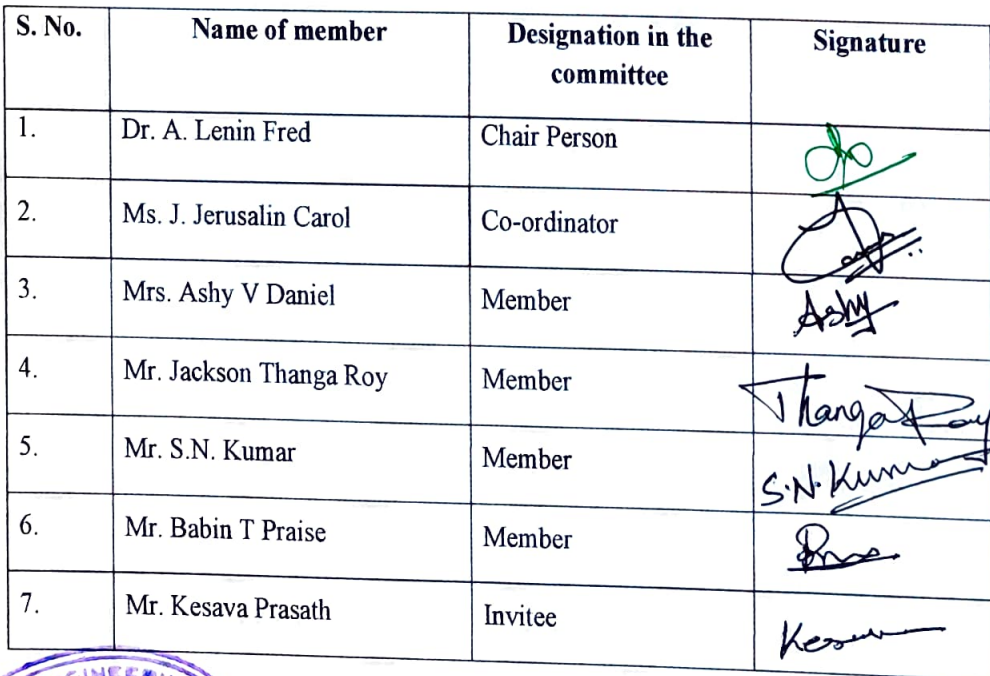 S. No. Name of member Designation in the Signature
committee
1. Dr. A. Lenin Fred Chair Person
2. Ms. J. Jerusalin Carol Co-ordinator
3. Mrs. Ashy V Daniel Member Ashy
4. Mr. Jackson Thanga Roy Member Thanga Roy
5. Mr. S.N. Kumar Member S.N.Kumar
6. Mr. Babin T Praise Member
7. Mr. Kesava Prasath Invitee